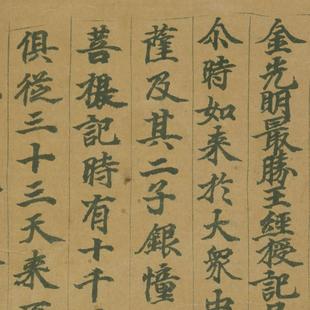 金光明最勝王經授記品
尒時如来於大衆中
薩及其二子銀幢
菩提記時有十千
俱從三十三天来至